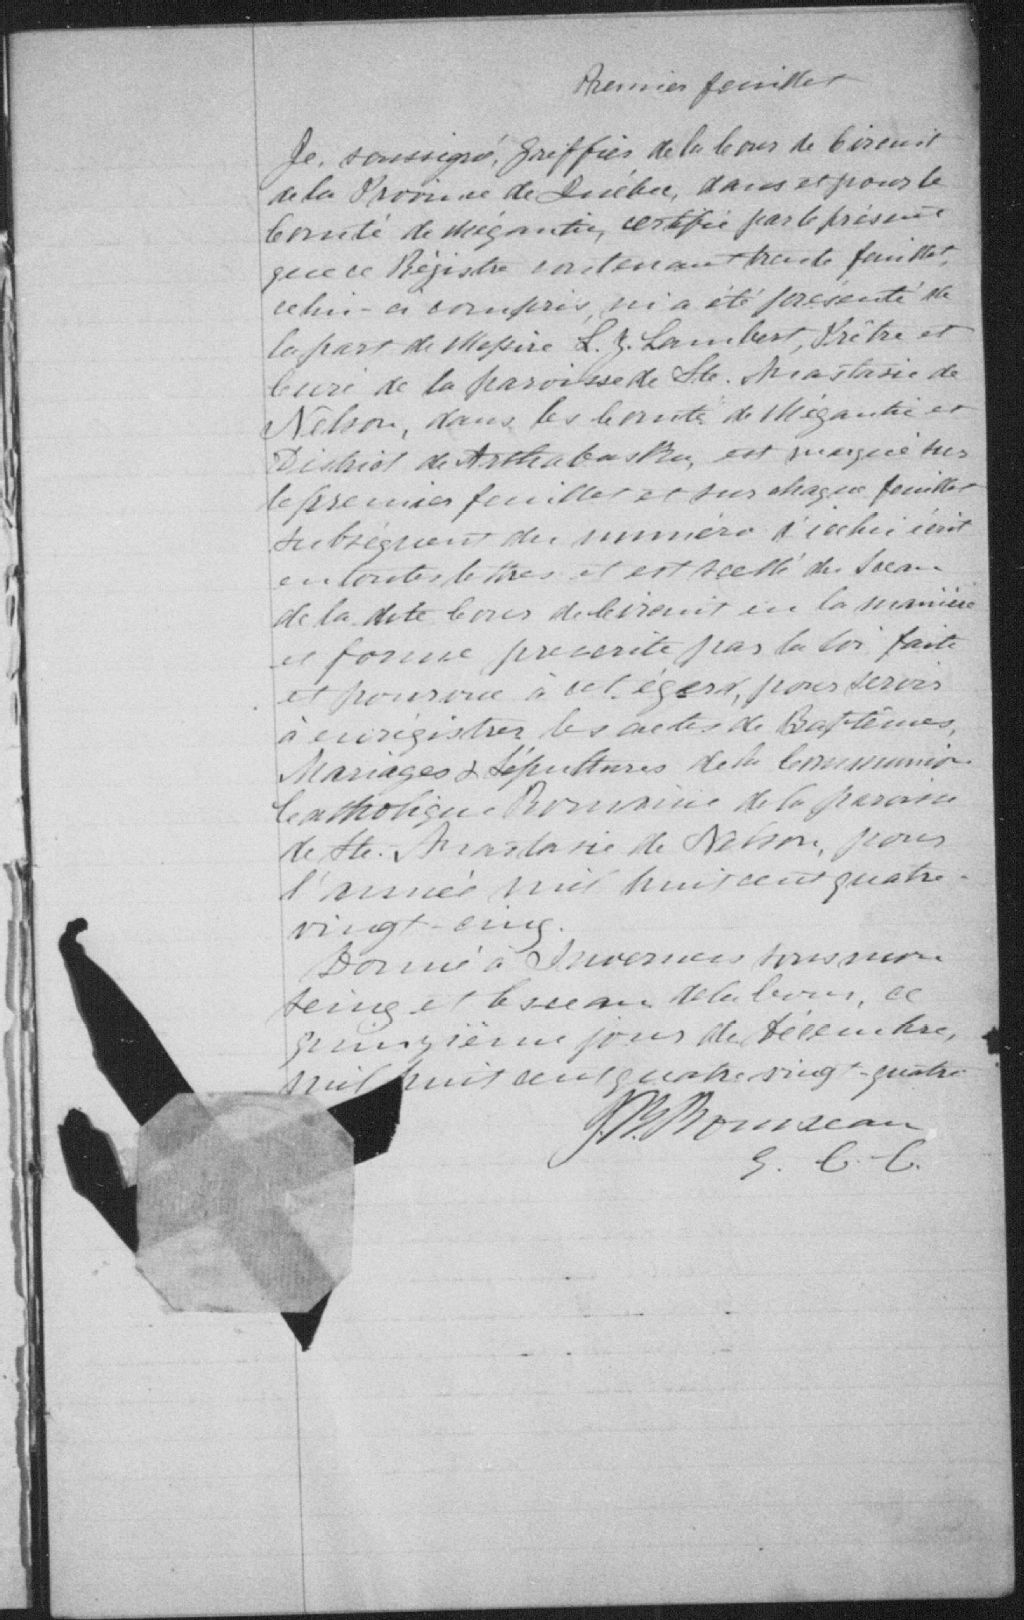 Premier feuillet
Je, soussigné, Greffier de la Cour de Circuit
de la Province de Québec, dans et pour le
Comté de Mégantic, certifie par le présent
que ce Régistre contenant trente feuillets,
celui-ci compris, m'a été présenté de
la part de Messire L. Z. Lambert, Prêtre et
Curé de la paroisse de Ste. Anastasie de
Nelson, dans les Comté de Mégantic et
District de Arthabaska, est marqué sur
le premier feuillet et sur chaque feuillet
subséquent du numéro d'icelui écrit
en toutes lettres et est scellé du Sceau
de la dite Cour de Circuit en la manière
et forme prescrite par la loi faite
et pourvue à cet égard, pour servir
à enrégistrer les actes de Baptêmes,
Mariages & Sépultures de la Communion
Catholique Romaine de la paroisse
de Ste. Anastasie de Nelson, pour
l'année mil huit cent quatre-
vingt-cinq.
Donné à Inverness sous mon
seing et le sceau de la Cour, ce
quinzième jour de Décembre,
mil huit cent quatre vingt-quatre
Rousseau
G. C. C.